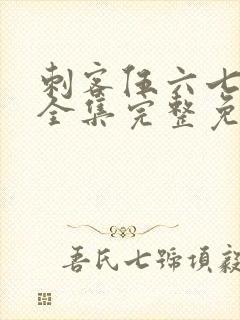 刺客伍六七
全集完整免
吾氏七號項毅